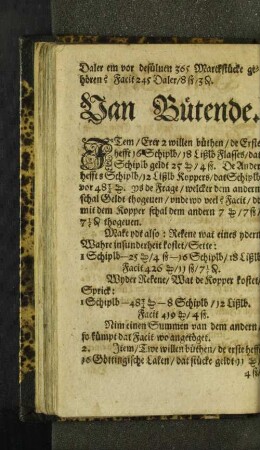 Daler em vor desüluen 365 Marckstücke ge-
hören? Facit 245 Daler/8 ß/3 ₰.
Van Bütende.
ITem/Erer 2 willen büthen/de Erste
hefft 16 Schiplb/18 Lißlb Flasses/dat
Schiplb geldt 25 /4 ß. De Ander
hefft 8 Schiplb/12 Lißlb Koppers/dat Schiplb
vor 48 . ys de Frage/welcker dem andern
schal Geldt thogeuen/vnde wo veel? Facit/de
mit dem Kopper schal dem andern 7 /7 ß/
7 ₰ thogeuen.
Make ydt also: Rekene wat eines ydern
Wahre insunderheit kostet/Sette:
1 Schiplb—25 /4 ß—16 Schiplb/18 Lißlb
Facit 426 /11 ß/7 ₰.
Wyder Rekene/Wat de Kopper kostet/
Sprick:
1 Schiplb—48 —8 Schiplb/12 Lißlb.
Facit 419 /4 ß.
Nim einen Summen van dem andern/
so kümpt dat Facit wo angetöget.
2. Item/Twe willen büthen/de erste hefft
16 Göttingische Laken/dat stücke geldt 11
4 ß/